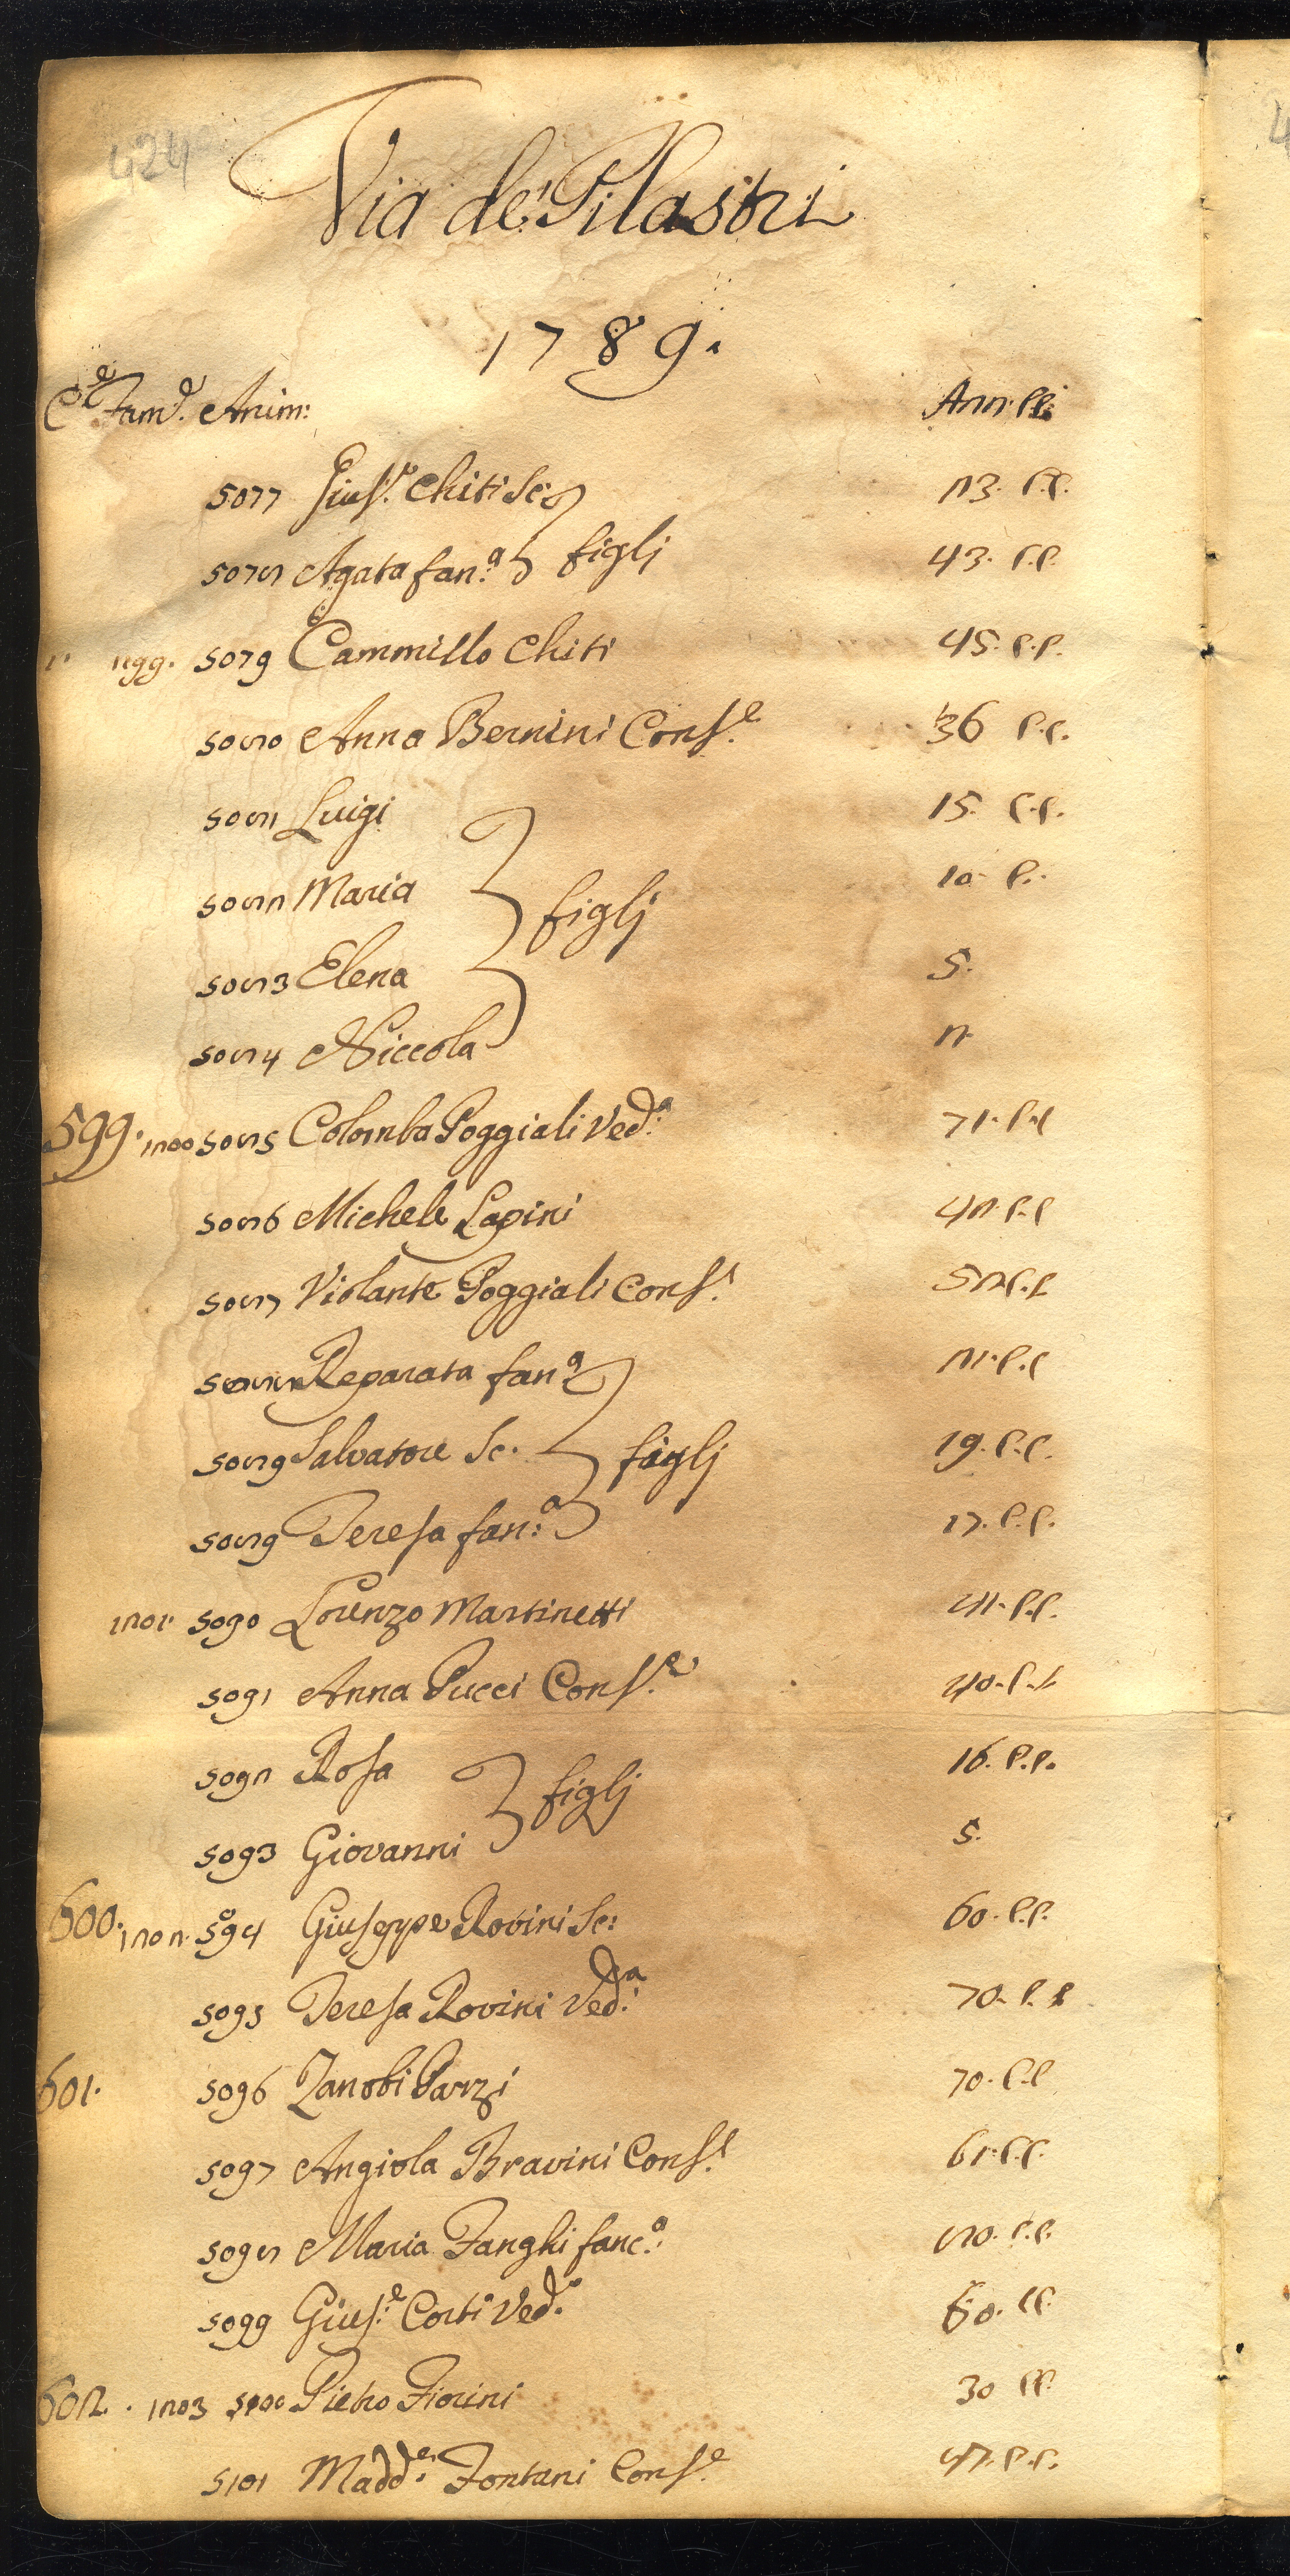 424
Via de' Pilastri
1789.
C.e Fam.e Anim: Ann: PP:
5077 Gius.e Chiti Sc: 23. P.P.
5078 Agata fan.a figlj 43. P.P.
1199. 5079 Cammillo Chiti 45. P.P.
5080 Anna Bernini Cons.e 36 P.P.
5081 Luigi 15. P.P.
5082 Maria figlj 10. P.
5083 Elena 5.
5084 Niccola 2
599. 1200 5085 Colomba Poggiali Ved.a 71. P.P
5086 Michele Lapini 42. P.P
5087 Violante Poggiali Cons.e 52 P.P
5088 Reparata fan.a 21. P.P
5089 Salvatore Sc. figlj 19. P.P.
5089 Teresa fan:a 17. P.P.
1201. 5090 Lorenzo Martinetti 41. P.P.
5091 Anna Pucci Cons.e 40. P.P
5092 Rosa figlj 16. P.P.
5093 Giovanni 5.
600. 1202. 5094 Giuseppe Rovini Sc: 60. P.P.
5095 Teresa Rovini Ved.a 70. P.P
601. 5096 Zanobi Parzi 70. P.P
5097 Angiola Bravini Cons.e 61. P.P.
5098 Maria Fanghi fanc.a 80. P.P.
5099 Gius.e Corti Ved.a 60. PP.
602. 1203 5100 Pietro Fiorini 30 PP.
5101 Madd.a Fontani Cons.e P.P.